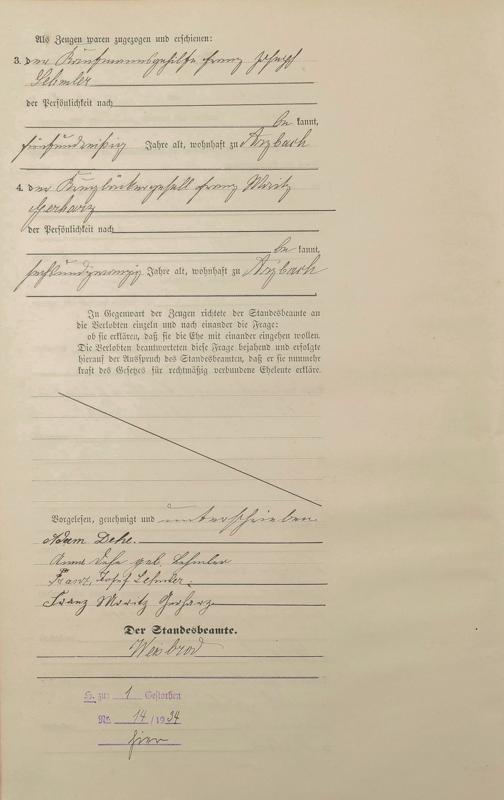 Als Zeugen waren zugezogen und erschienen:
3. der Kaufmannsgehilfe Franz Joseph
Lehmler
der Persönlichkeit nach
be kannt,
fünfunddreißig Jahre alt, wohnhaft zu Arzbach
4. der Krugbäckergesell Franz Moritz
Gerharz
der Persönlichkeit nach
be kannt,
sechsundzwanzig Jahre alt, wohnhaft zu Arzbach
In Gegenwart der Zeugen richtete der Standesbeamte an
die Verlobten einzeln und nach einander die Frage:
ob sie erklären, daß sie die Ehe mit einander eingehen wollen.
Die Verlobten beantworteten diese Frage bejahend und erfolgte
hierauf der Ausspruch des Standesbeamten, daß er sie nunmehr
kraft des Gesetzes für rechtmäßig verbundene Eheleute erkläre.
Vorgelesen, genehmigt und unterschrieben.
Adam Dehe.
Anna Dehe geb. Lehmler
Franz Josef Lehmler.
Franz Moritz Gerharz
Der Standesbeamte.
Weisbrod
H. zu: 1 Gestorben
Nr. 14 / 1934
hier